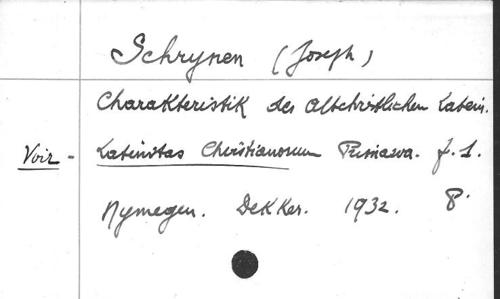 Schrynen (Joseph)
Charakteristik des Altchristlichen Latein.
Voir - Latinitas Christianorum Primaeva. f. 1.
Nymegen. Dekker. 1932. 8°